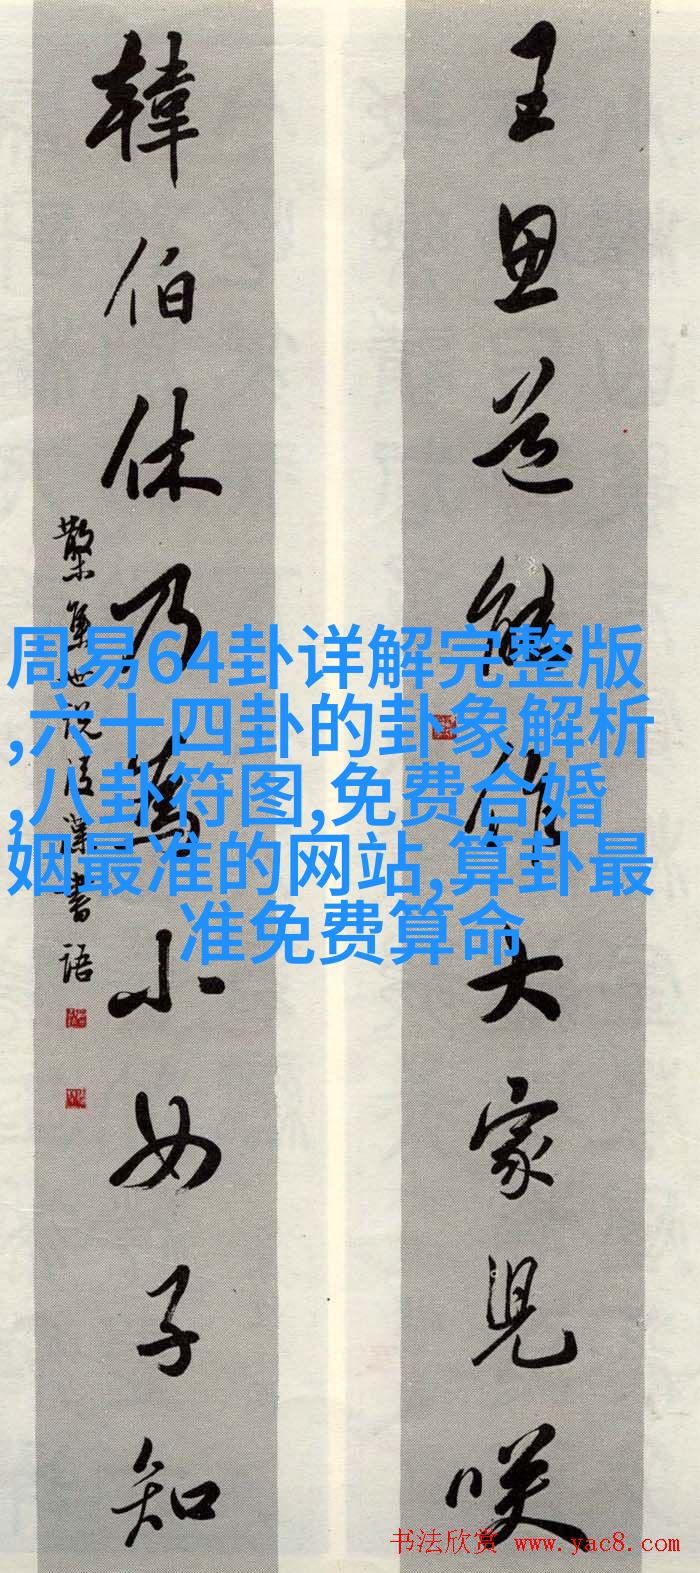 王思道能作大家兒咲
韓伯休乃為小女子知
集世説後漢書語
周易64卦详解完整版
,六十四卦的卦象解析
,八卦符图,免费合婚
姻最准的网站,算卦最
准免费算命
书法欣赏 www.yac8.com